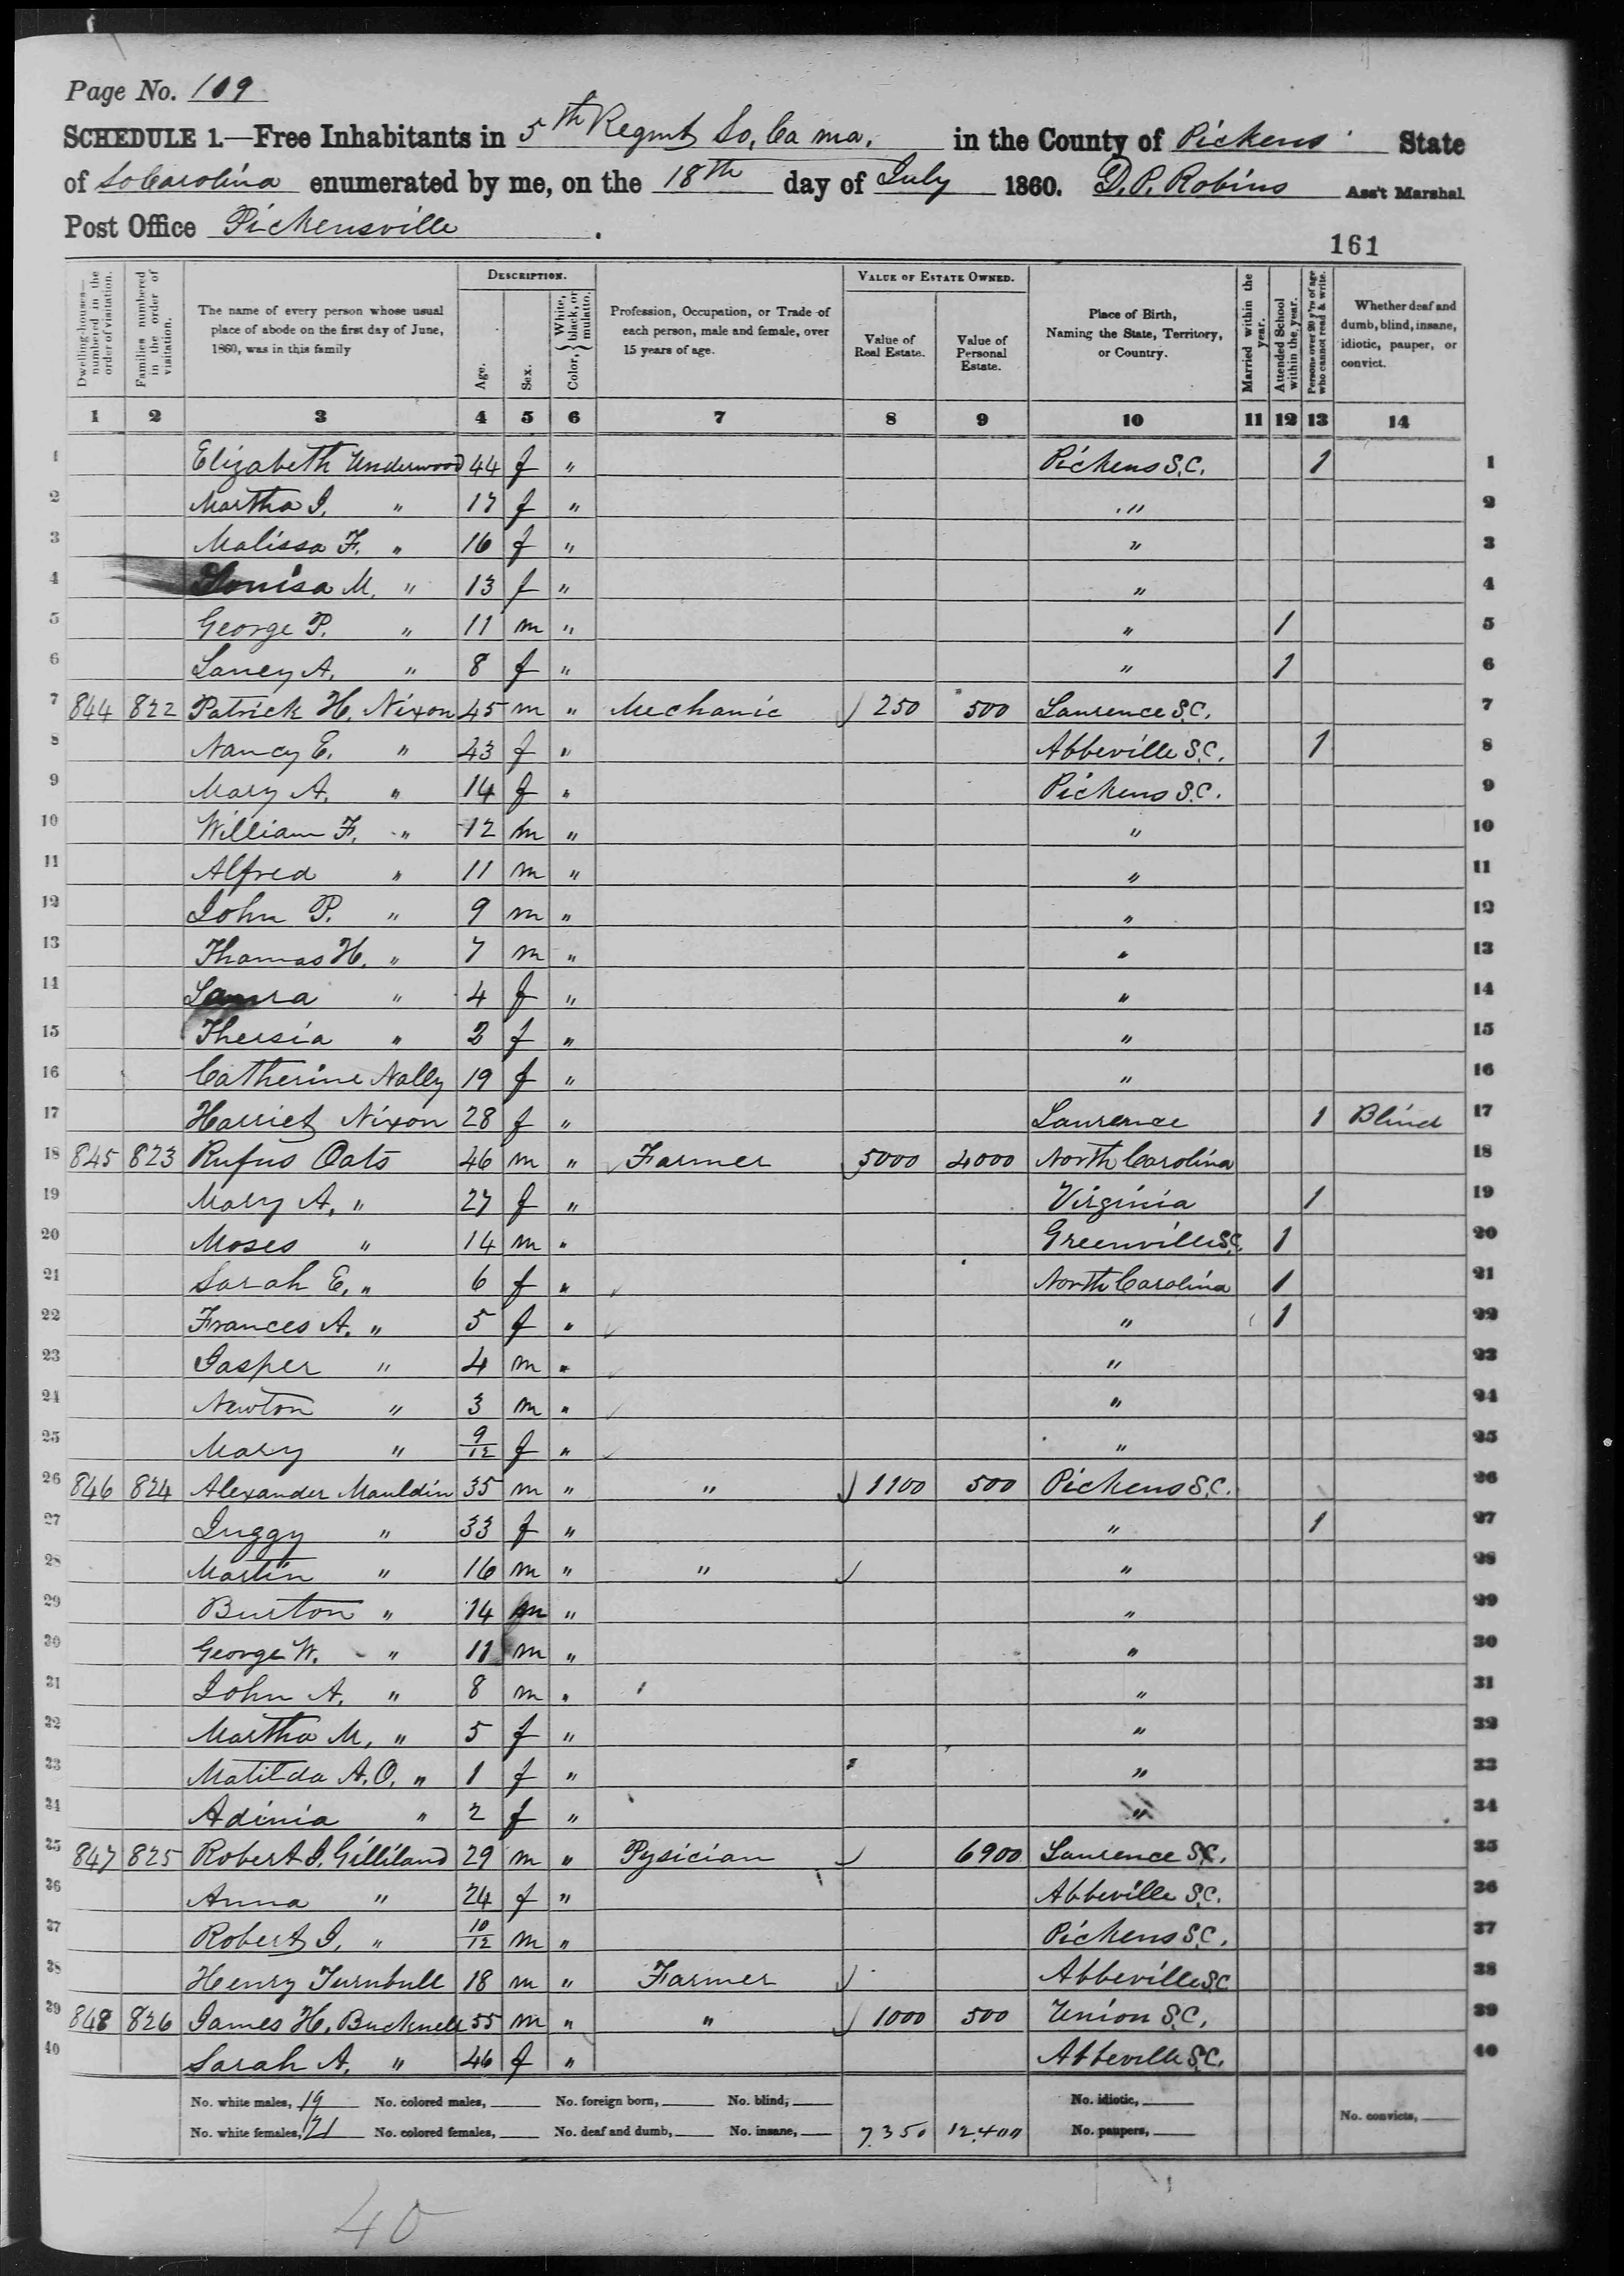 Page No. 109
SCHEDULE 1.—Free Inhabitants in 5th Regmt So, Ca ma, in the County of Pickens State
of So Carolina enumerated by me, on the 18th day of July 1860. D. P. Robins Ass't Marshal
Post Office Pickensville.
161
Dwelling-houses—numbered in the order of visitation. Families numbered in the order of visitation. The name of every person whose usual place of abode on the first day of June, 1860, was in this family Description. Age. Sex. Color, { White, black, or mulatto. Profession, Occupation, or Trade of each person, male and female, over 15 years of age. Value of Estate Owned. Value of Real Estate. Value of Personal Estate. Place of Birth, Naming the State, Territory, or Country. Married within the year. Attended School within the year. Persons over 20 y'rs of age who cannot read & write. Whether deaf and dumb, blind, insane, idiotic, pauper, or convict.
1 2 3 4 5 6 7 8 9 10 11 12 13 14
1 Elizabeth Underwood 44 f " Pickens S.C. 1 1
2 Martha J. " 17 f " " 2
3 Malissa F. " 16 f " " 3
4 Louisa M. " 13 f " " 4
5 George P. " 11 m " " 1 5
6 Laney A. " 8 f " " 1 6
7 844 822 Patrick H. Nixon 45 m " Mechanic 250 500 Laurence S.C. 7
8 Nancy E. " 43 f " Abbeville S.C. 1 8
9 Mary A. " 14 f " Pickens S.C. 9
10 William F. " 12 m " " 10
11 Alfred " 11 m " " 11
12 John P. " 9 m " " 12
13 Thomas H. " 7 m " " 13
14 Laura " 4 f " " 14
15 Thersia " 2 f " " 15
16 Catherine Nally 19 f " " 16
17 Harriet Nixon 28 f " Laurence 1 Blind 17
18 845 823 Rufus Oats 46 m " Farmer 5000 4000 North Carolina 18
19 Mary A. " 27 f " Virginia 1 19
20 Moses " 14 m " Greenville S.C. 1 20
21 Sarah E. " 6 f " North Carolina 1 21
22 Frances A. " 5 f " " 1 22
23 Jasper " 4 m " " 23
24 Newton " 3 m " " 24
25 Mary " 9/12 f " " 25
26 846 824 Alexander Mauldin 35 m " " 1100 500 Pickens S.C. 26
27 Juggy " 33 f " " 1 27
28 Martin " 16 m " " " 28
29 Burton " 14 m " " 29
30 George W. " 11 m " " 30
31 John A. " 8 m " " 31
32 Martha M. " 5 f " " 32
33 Matilda A. O. " 1 f " " 33
34 Adinia " 2 f " " 34
35 847 825 Robert J. Gilliland 29 m " Pysician 6900 Laurence S.C. 35
36 Anna " 24 f " Abbeville S.C. 36
37 Robert J. " 10/12 m " Pickens S.C. 37
38 Henry Turnbull 18 m " Farmer Abbeville S.C 38
39 848 826 James H. Bucknell 55 m " " 1000 500 Union S.C. 39
40 Sarah A. " 46 f " Abbeville S.C. 40
No. white males, 19 No. colored males, No. foreign born, No. blind, No. idiotic,
No. white females, 21 No. colored females, No. deaf and dumb, No. insane, 7350 12,400 No. paupers, No. convicts,
40